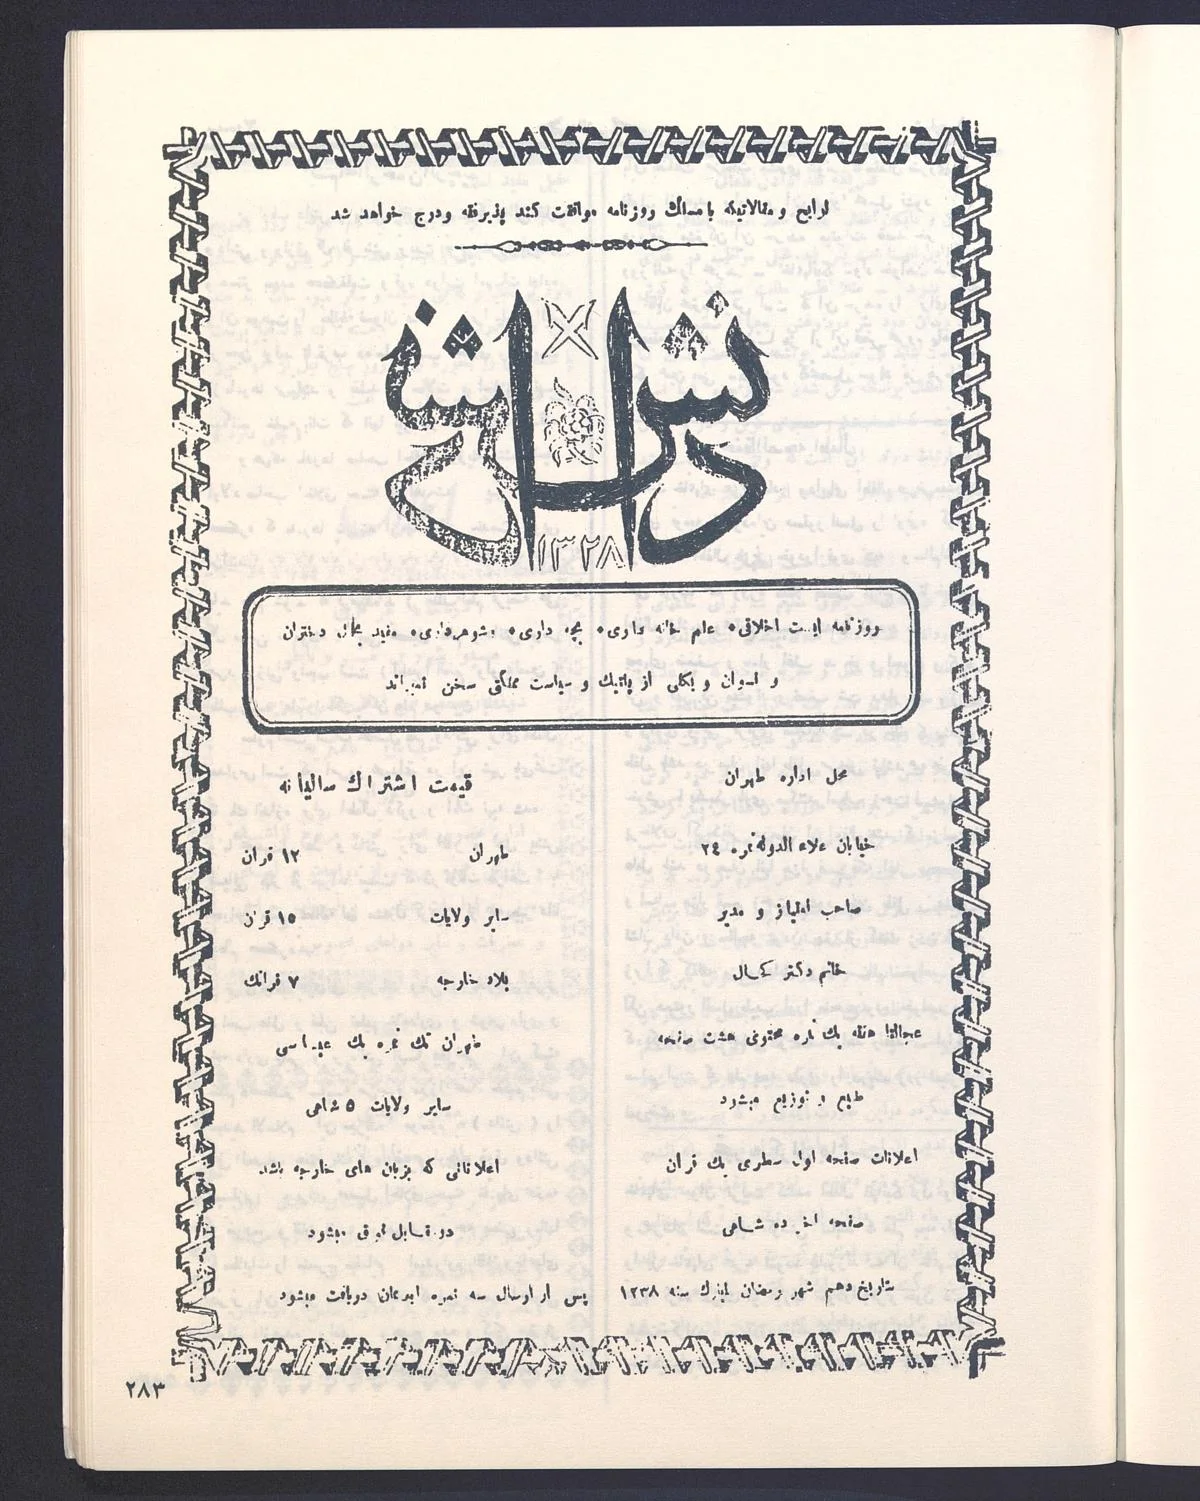 لوایح و مقالاتیکه با مسلك روزنامه موافقت کند پذیرفته ودرج خواهد شد
دانش
۱۳۲۸
روزنامه ایست اخلاقی، علم خانه داری، بچه داری، شوهرداری، مفید بحال دختران
و نسوان و بکلی از پلتیك و سیاست مملکتی سخن نمیراند
محل اداره طهران
خیابان علاء الدوله نمره ۲٤
صاحب امتیاز و مدیر
خانم دکتر کحال
عجالتا هفته یك نمره محتوی هشت صفحه
طبع و توزیع میشود
اعلانات صفحه اول سطری یك قران
صفحه اخر ده شاهی
بتاریخ دهم شهر رمضان المبارك سنه ۱۲۳۸
قیمت اشتراك سالیانه
طهران ۱۲ قران
سایر ولایات ۱۵ قران
بلاد خارجه ۷ فرانك
طهران تك نمره یك عباسی
سایر ولایات ۵ شاهی
اعلاناتی که بزبان های خارجه باشد
دو مقابل فوق میشود
پس از ارسال سه نمره ابونمان دریافت میشود
۲۸۳